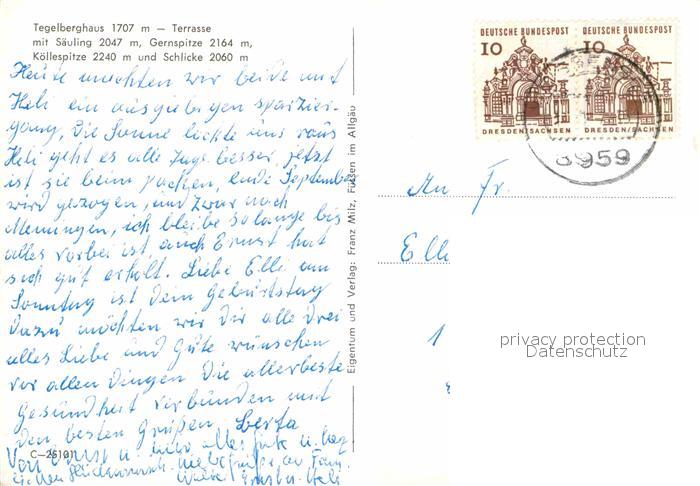 Tegelberghaus 1707 m — Terrasse
mit Säuling 2047 m, Gernspitze 2164 m,
Köllespitze 2240 m und Schlicke 2060 m
Heute machten wir beide mit
Heli ein ausgiebigen spazier-
gang, Die Sonne lockte uns raus
Heli geht es alle Tage besser, jetzt
ist sie beim packen, ende September
wird gezogen, und zwar nach
Memingen, ich bleibe so lange bis
alles vorbei ist, auch Ernst hat
sich gut erholt. Liebe Elli am
Sonntag ist Dein Geburtstag
Dazu möchten wir Dir alle Drei
alles Liebe und Gute wünschen
vor allen Dingen Die allerbeste
Gesundheit verbunden mit
den besten Grüßen Berta
Von Ernst u. alles Gute u.
C—26101
Eigentum und Verlag: Franz Milz, Füssen im Allgäu
DEUTSCHE BUNDESPOST DEUTSCHE BUNDESPOST
10 10
DRESDEN/SACHSEN DRESDEN/SACHSEN
8959
An Fr.
Elli
1
privacy protection
Datenschutz